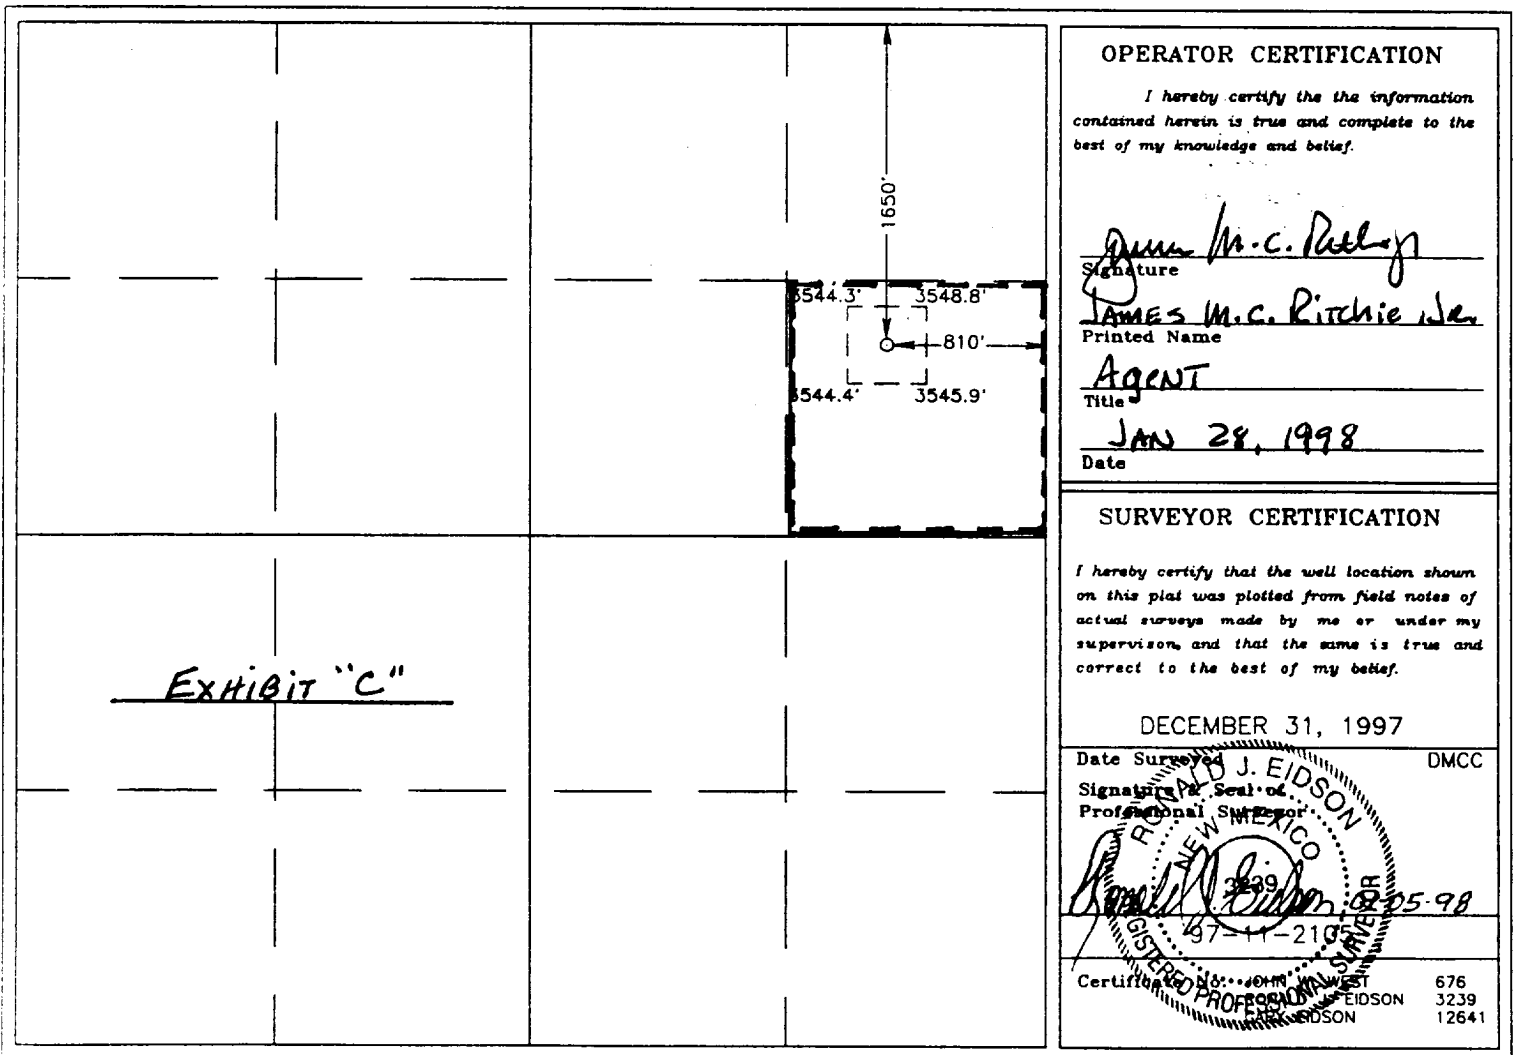 1650'
3544.3' 3548.8'
810'
3544.4' 3545.9'
EXHIBIT "C"
OPERATOR CERTIFICATION
I hereby certify the the information
contained herein is true and complete to the
best of my knowledge and belief.
Signature
JAMES M.C. RITCHIE, JR.
Printed Name
AGENT
Title
JAN 28, 1998
Date
SURVEYOR CERTIFICATION
I hereby certify that the well location shown
on this plat was plotted from field notes of
actual surveys made by me or under my
supervison, and that the same is true and
correct to the best of my belief.
DECEMBER 31, 1997
Date Surveyed DMCC
Signature & Seal of
Professional Surveyor
RONALD J. EIDSON
NEW MEXICO
3239
REGISTERED PROFESSIONAL SURVEYOR
Ronald J. Eidson 02-05-98
97-11-2105
Certificate No. JOHN W. WEST 676
RONALD J. EIDSON 3239
GARY EIDSON 12641